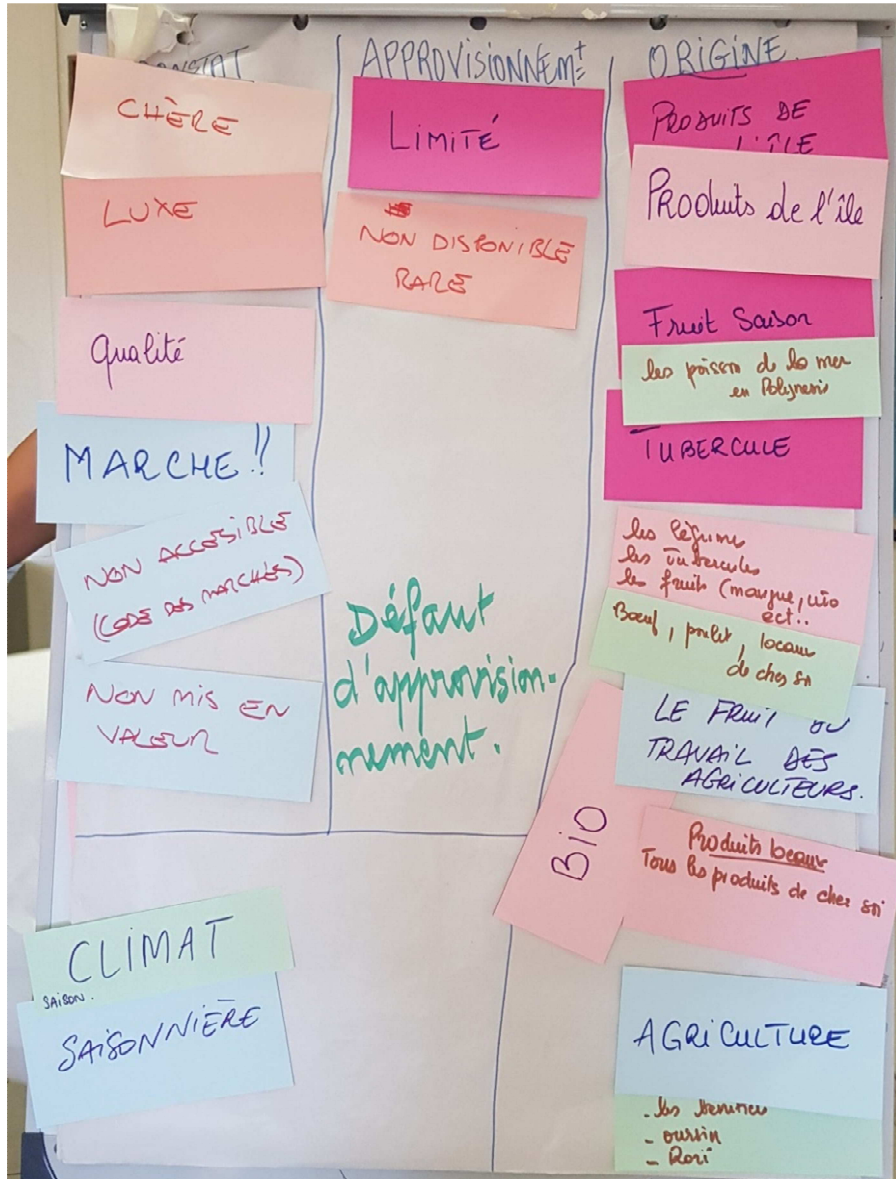 CONSTAT
CHÈRE
LUXE
Qualité
MARCHE !!
NON ACCESIBLE
(CODE DES MARCHÉS)
NON MIS EN
VALEUR
APPROVISIONNEMT
LIMITÉ
NON DISPONIBLE
RARE
Défaut
d'approvision-
nement.
ORIGINE
PRODUITS DE
L'ÎLE
PRoduits de l'île
Fruit Saison
les poisson de la mer
en Polynesie
TUBERCULE
les légume
les tubercules
les fruits (mangue,
ect..
Boeuf, poulet, locaux
de chez soi
LE FRUIT DU
TRAVAIL DES
AGRICULTEURS.
BIO
Produits locaux
Tous les produits de chez soi
CLIMAT
SAISON.
SAISONNIÈRE
AGRICULTURE
- les
- oursin
- Rori